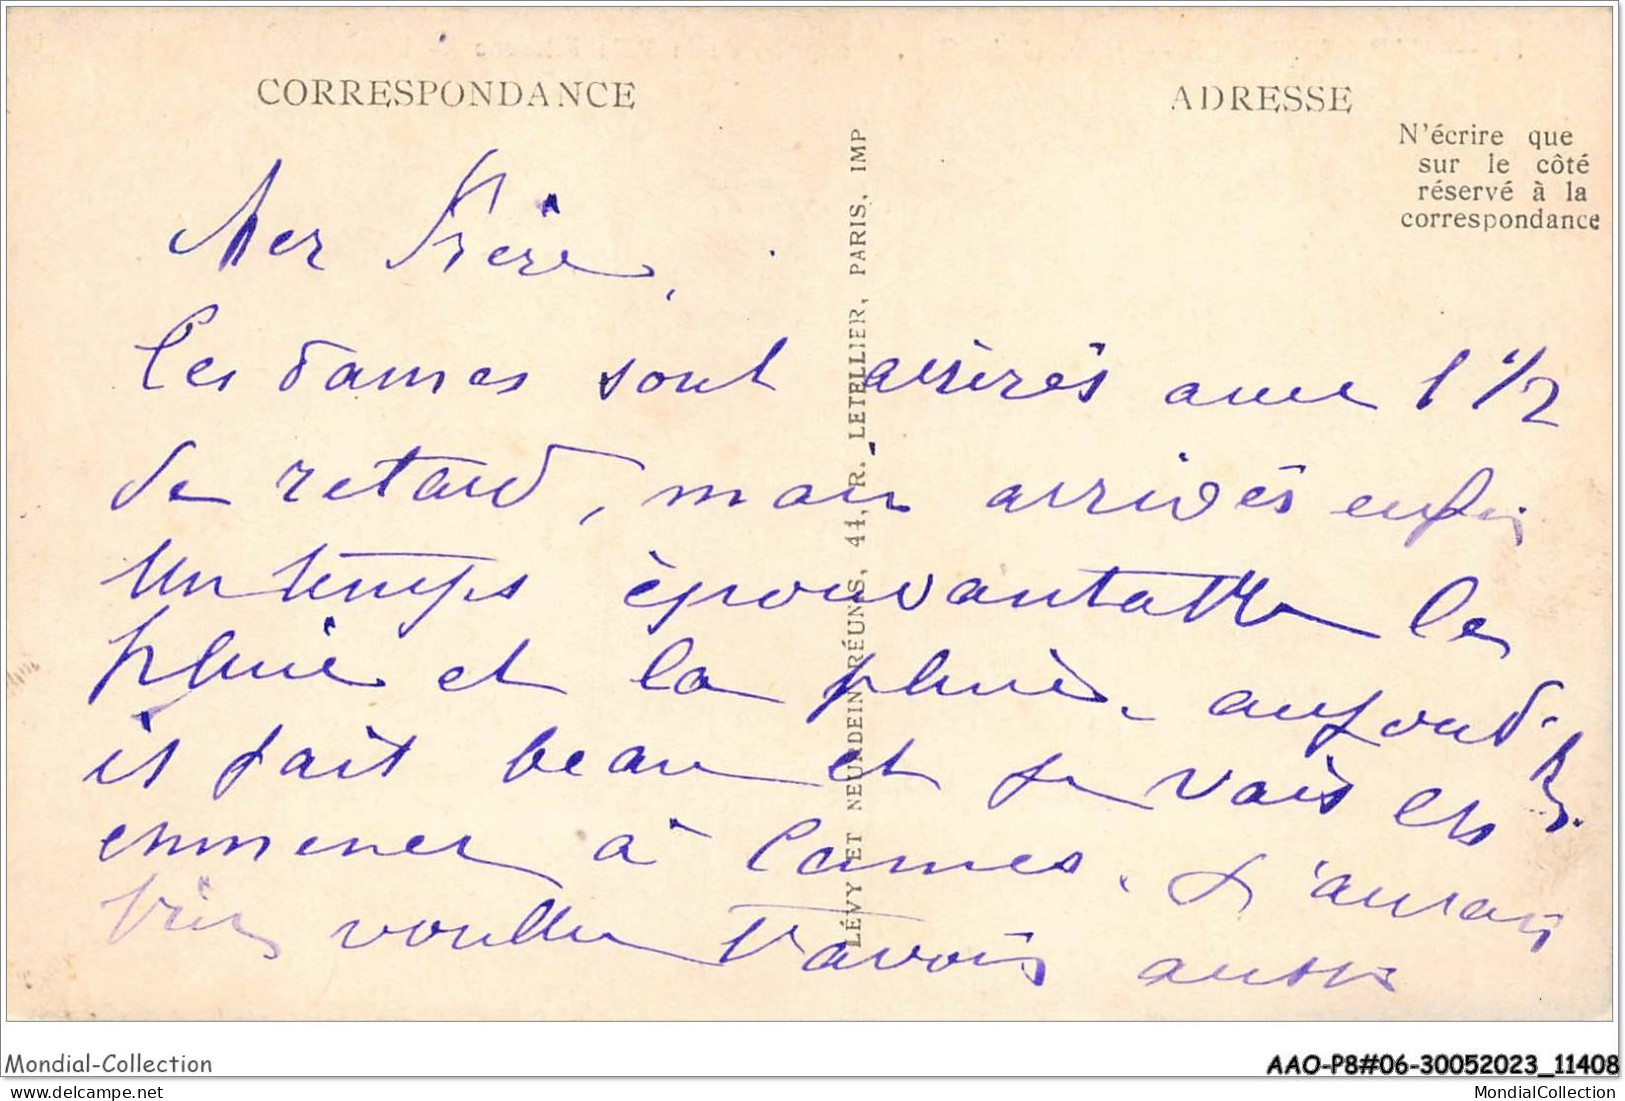 CORRESPONDANCE
ADRESSE
N'écrire que
sur le côté
réservé à la
correspondance
LÉVY ET NEURDEIN RÉUNIS, 44, R. LETELLIER, PARIS, IMP
Mer Frère,
les dames sont arrivés avec 1 1/2
de retard, mais arrivés enfin
un temps épouvantable la
pluie et la pluie, aujourd'hui
il fait beau et je vais les
emmener à Cannes. J'aurais
bien voulu t'avoir aussi
Mondial-Collection
AAO-P8#06-30052023_11408
MondialCollection
delcampe.net